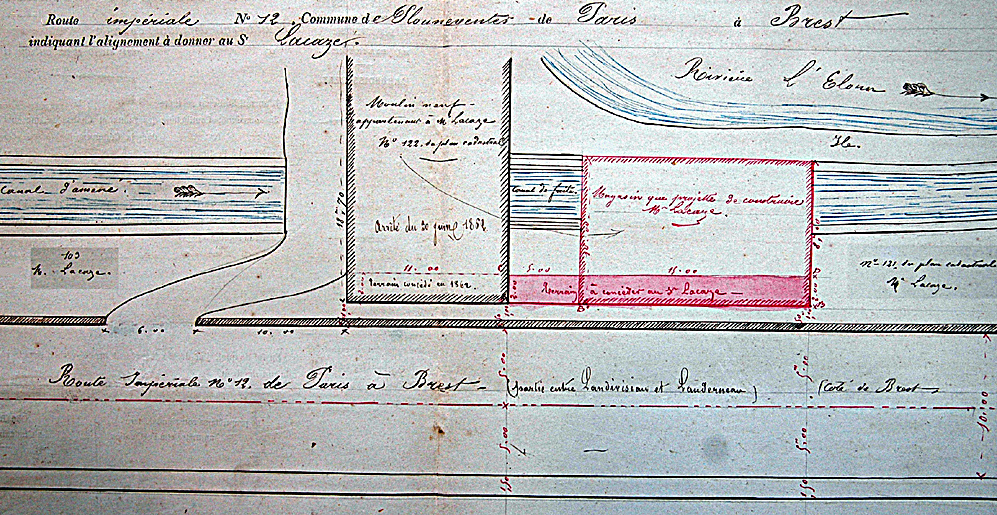 Route impériale N° 12 Commune de Plouneventer de Paris à Brest
indiquant l'alignement à donner au S Lacaze.
Rivière L'Elorn
Moulin neuf
appartenant à M. Lacaze
N° 122. du plan cadastral
Ile.
Canal d'amené.
canal de fuite.
Magasin que projette de construire
Mr Lacaze.
18.70
Arrêté du 20 juin 1862
103
M. Lacaze.
n° 131. du plan cadastral
Mr Lacaze.
11.00
5.00
15.00
terrain concédé en 1862.
Terrain à concéder au Sr Lacaze
2.00
6.00
10.00
Route Impériale N° 12. de Paris à Brest (partie entre Landivisiau et Landerneau) (Coté de Brest
5.00
5.00
10.00
5.00
5.00
1.50
1.50